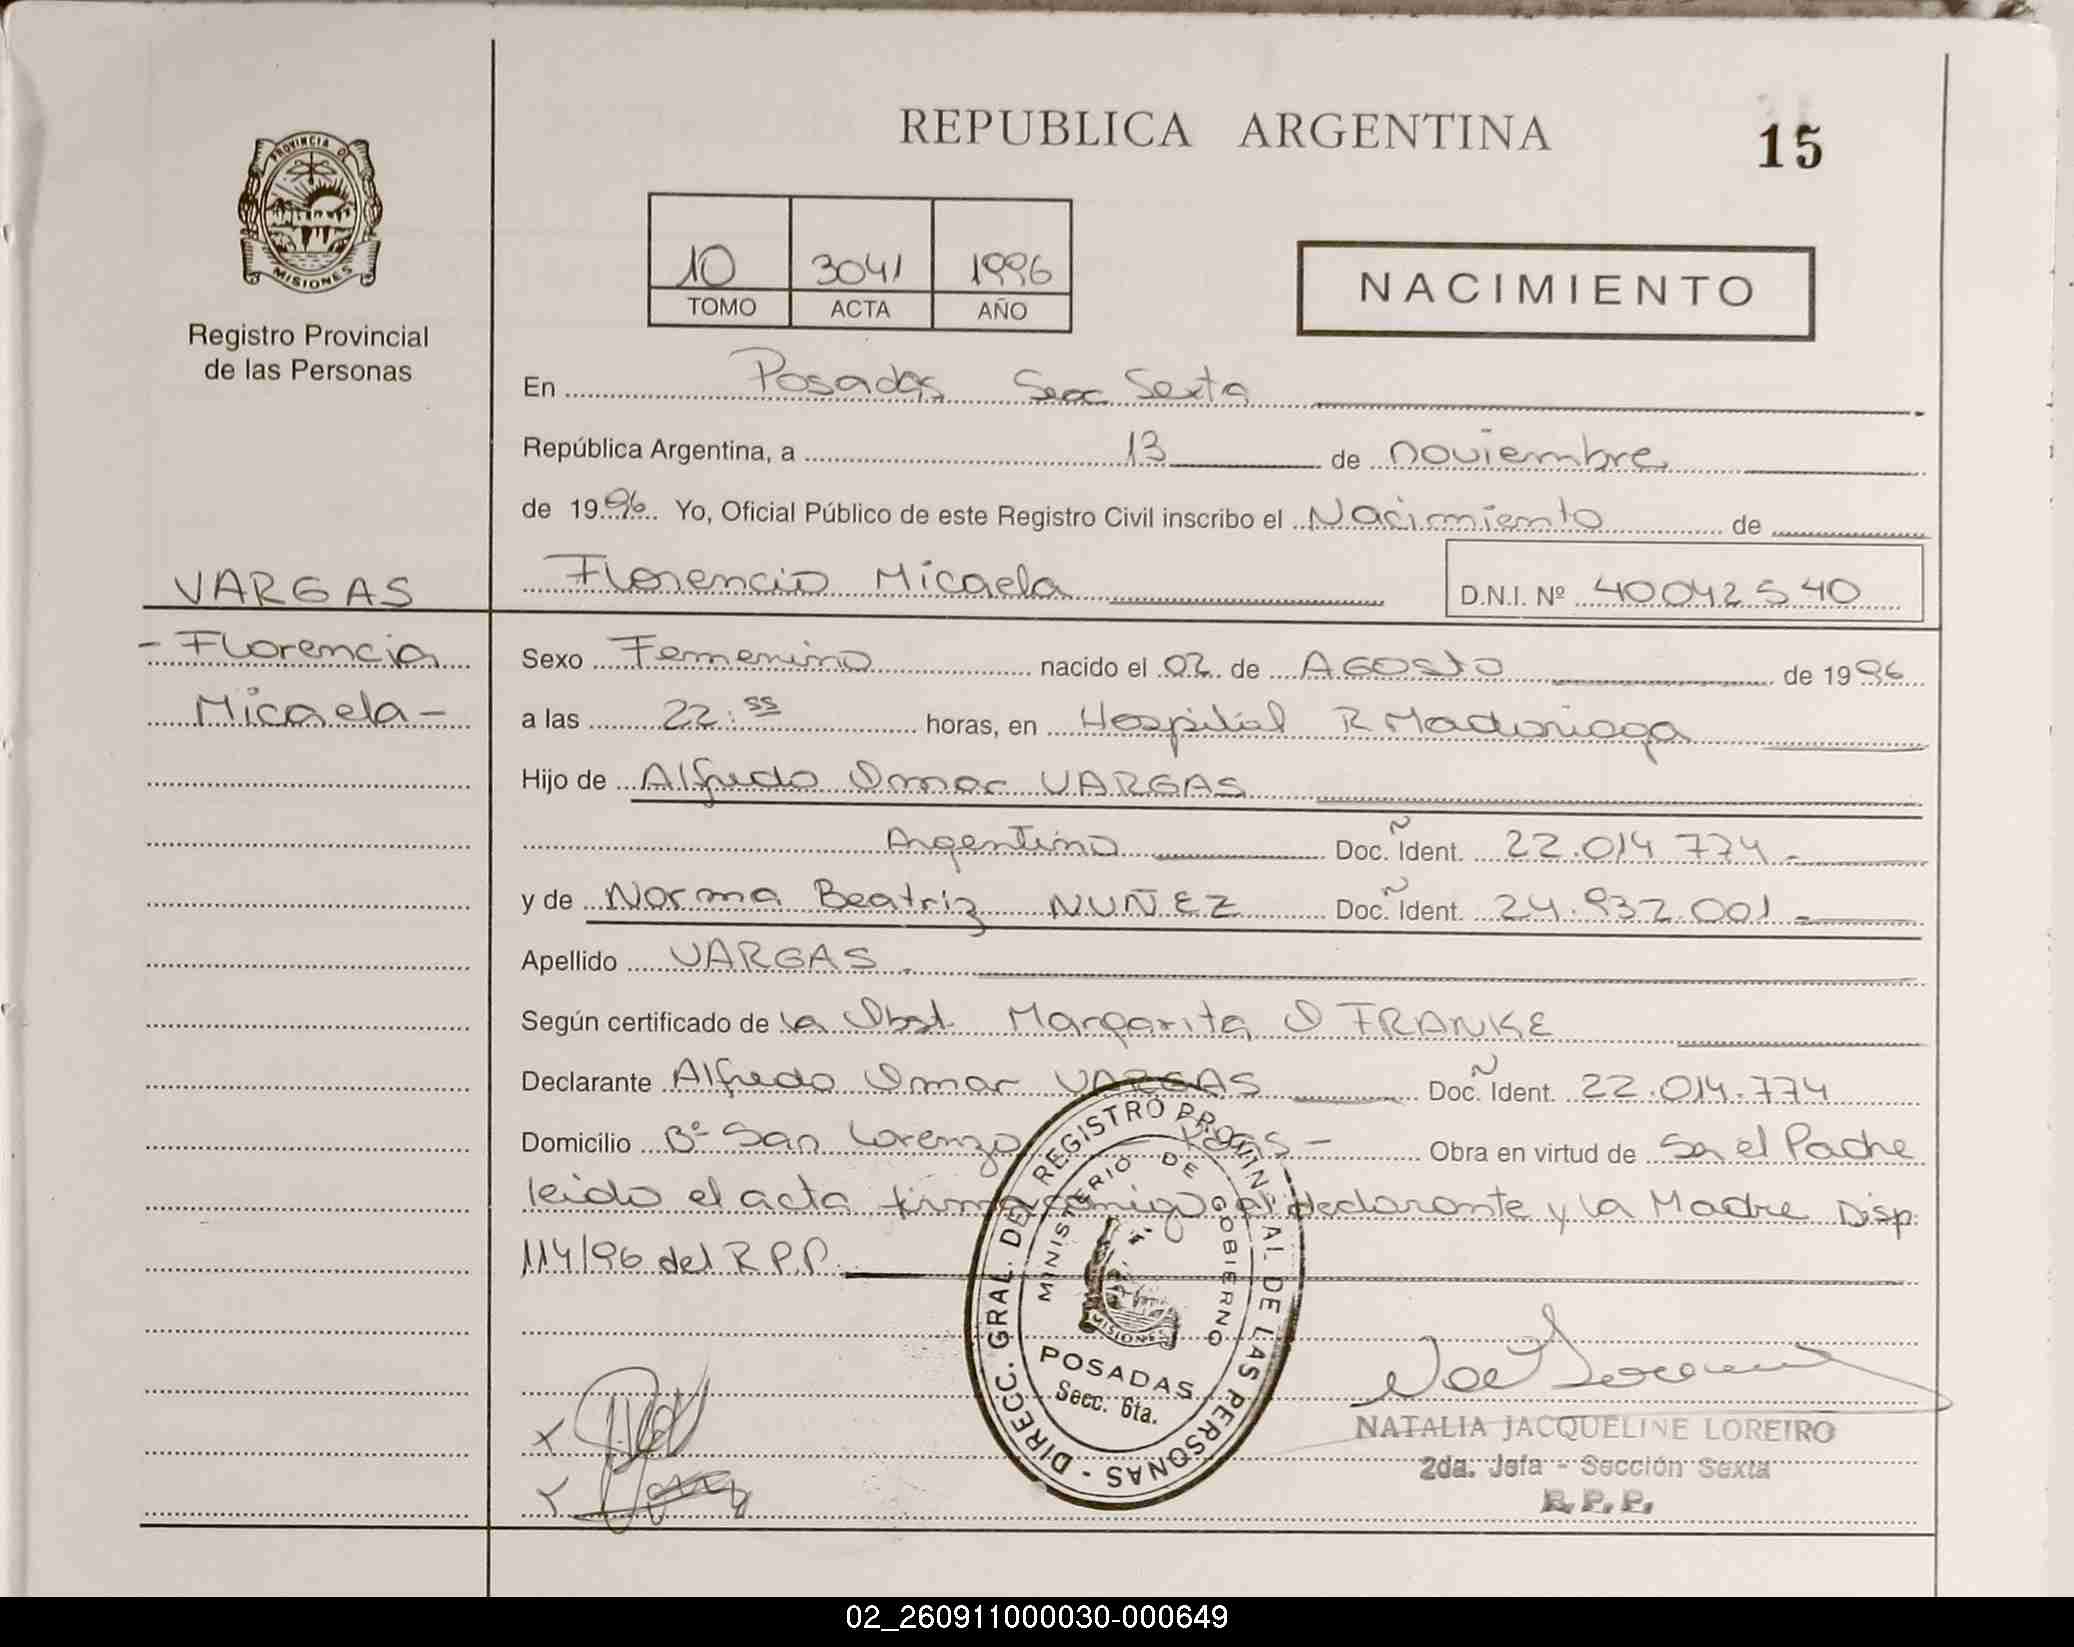 REPUBLICA ARGENTINA
15
PROVINCIA DE
MISIONES
Registro Provincial
de las Personas
10 3041 1996
TOMO ACTA AÑO
NACIMIENTO
En Posadas Secc Sexta
República Argentina, a 13 de noviembre
de 1996 Yo, Oficial Público de este Registro Civil inscribo el Nacimiento de
Florencia Micaela D.N.I. Nº 40042540
VARGAS
- Florencia
Micaela -
Sexo Femenino nacido el 02 de AGOSTO de 1996
a las 22:55 horas, en Hospital R Madariaga
Hijo de Alfredo Omar VARGAS
Argentino Doc. Ident. 22.014 774 -
y de Norma Beatriz NUÑEZ Doc. Ident. 24.932.001 -
Apellido VARGAS.
Según certificado de la Obst. Margarita O FRANKE
Declarante Alfredo Omar VARGAS Doc. Ident. 22.014.774
Domicilio Bº San Lorenzo Pdas - Obra en virtud de Ser el Padre
leido el acta firma conmigo el declarante y la Madre Disp.
114/96 del R.P.P.
DIRECC. GRAL. DEL REGISTRO PROVINCIAL DE LAS PERSONAS -
MINISTERIO DE GOBIERNO
MISIONES
POSADAS
Secc. 6ta.
NATALIA JACQUELINE LOREIRO
2da. Jefa - Sección Sexta
R.P.P.
02_260911000030-000649